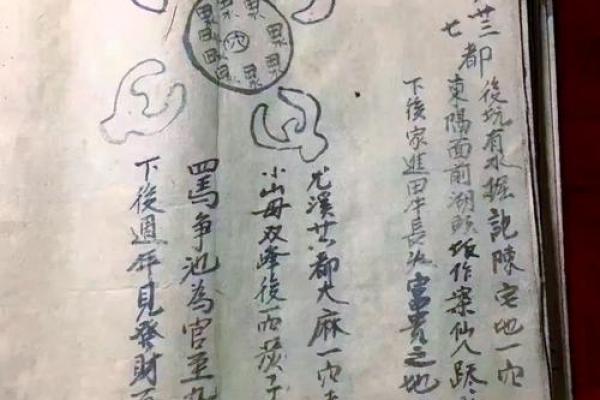 廿三都後坑有水掘記陳宅地一穴
七
東陽面前湖頭坂作案仙人跡
下後家進田牛長流富貴之地
尤溪廿都大麻一穴
小山母双峰後一穴
四馬争池為官至九
下後週年見發財
穴